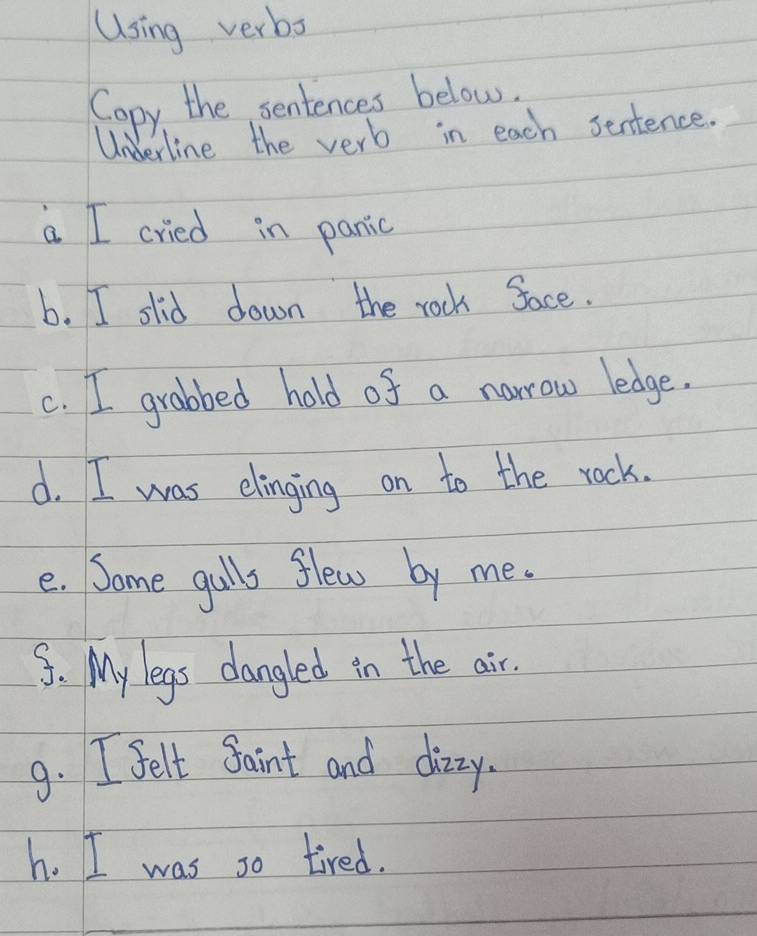 Using verbs
Copy the sentences below.
Underline the verb in each sentence.
a I cried in panic
b. I slid down the rock face.
c. I grabbed hold of a narrow ledge.
d. I was clinging on to the rock.
e. Some gulls flew by me.
f. My legs dangled in the air.
g. I felt faint and dizzy.
h. I was so tired.